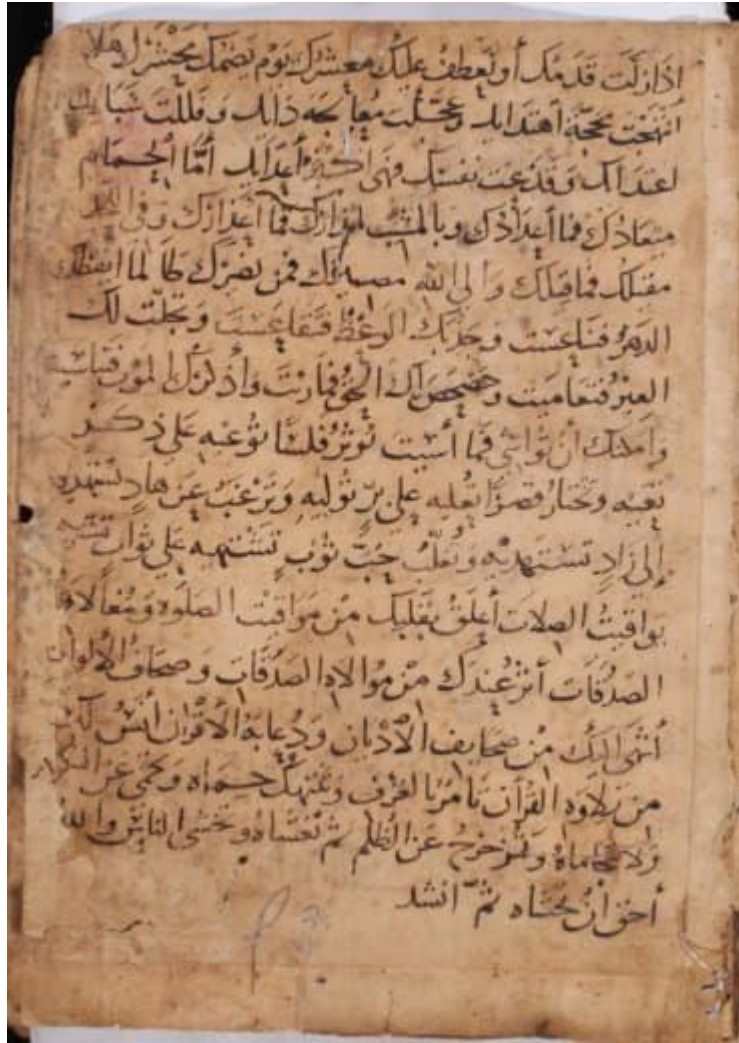 اذا زلت قدمك أو يعطف عليك معشرك يوم يضمك محشرك هلا
انتهجت محجة اهتدايك وعجلت معالجة دايك وفللت شباة
اعتدايك وقدعت نفسك فهي اكبر أعدايك أمّا الحمام
ميعادك فما أعدادك وبالمشيب انذارك فما أعذارك وفي اللحد
مقيلك فما قيلك والي الله مصيرك فمن نصيرك طالما ايقظك
الدهر فتناعست وجذبك الوعظ فتقاعست وتجلّت لك
العبر فتعاميت وحصحص لك الحق فماريت وأذكرك الموت فتناسيت
وامكنك أن تؤاسي فما أسيت تؤثر فلسًا توعيه علي ذكر
تعيه وتختار قصرًا تعليه علي برّ توليه وترغب عن هاد تستهديه
إلي زاد تستهديه وتغلّب حبّ ثوب تشتهيه علي ثواب تشتريه
يواقيت الصلات أعلق بقلبك من مواقيت الصلوة ومغالاة
الصدقات أثر عندك من موالاة الصدقات وصحاف الألوان
أشهي اليك من صحايف الأديان ودعابة الأقران أنس لك
من تلاوة القرأن تأمر بالعرف وتنهك حماه وتحمي عن النكر
ولا تحاماه وتزحزح عن الظلم ثم تغشاه وتخشي الناس والله
أحق أن تخشاه ثمّ انشد